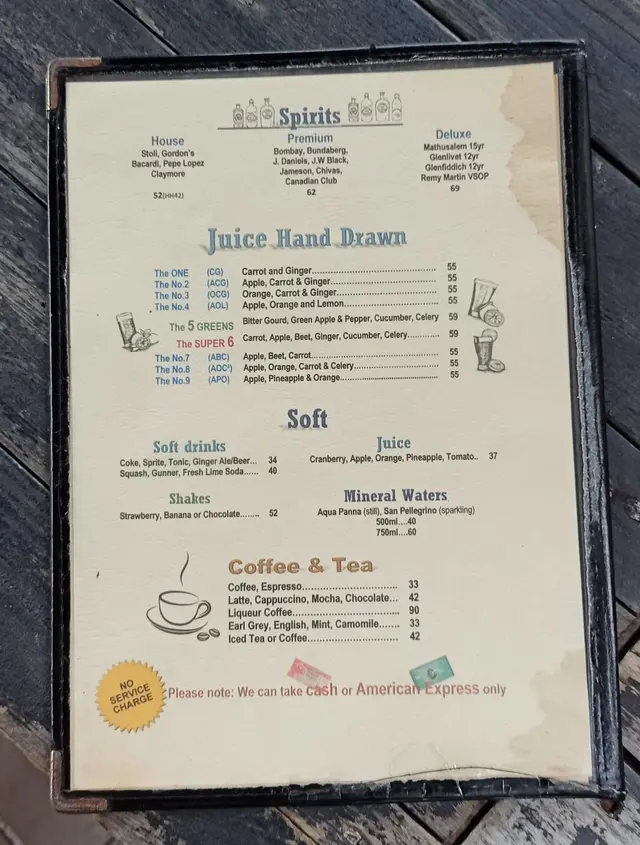 Spirits
House
Stoli, Gordon's
Bacardi, Pepe Lopez
Claymore
52(HH42)
Premium
Bombay, Bundaberg,
J. Daniels, J.W Black,
Jameson, Chivas,
Canadian Club
62
Deluxe
Mathusalem 15yr
Glenlivet 12yr
Glenfiddich 12yr
Remy Martin VSOP
69
Juice Hand Drawn
The ONE (CG) Carrot and Ginger 55
The No.2 (ACG) Apple, Carrot & Ginger 55
The No.3 (OCG) Orange, Carrot & Ginger 55
The No.4 (AOL) Apple, Orange and Lemon 55
The 5 GREENS Bitter Gourd, Green Apple & Pepper, Cucumber, Celery 59
The SUPER 6 Carrot, Apple, Beet, Ginger, Cucumber, Celery 59
The No.7 (ABC) Apple, Beet, Carrot 55
The No.8 (AOC²) Apple, Orange, Carrot & Celery 55
The No.9 (APO) Apple, Pineapple & Orange 55
Soft
Soft drinks
Coke, Sprite, Tonic, Ginger Ale/Beer... 34
Squash, Gunner, Fresh Lime Soda...... 40
Juice
Cranberry, Apple, Orange, Pineapple, Tomato.. 37
Shakes
Strawberry, Banana or Chocolate........ 52
Mineral Waters
Aqua Panna (still), San Pellegrino (sparkling)
500ml....40
750ml....60
Coffee & Tea
Coffee, Espresso 33
Latte, Cappuccino, Mocha, Chocolate... 42
Liqueur Coffee 90
Earl Grey, English, Mint, Camomile....... 33
Iced Tea or Coffee 42
NO
SERVICE
CHARGE
Please note: We can take cash or American Express only